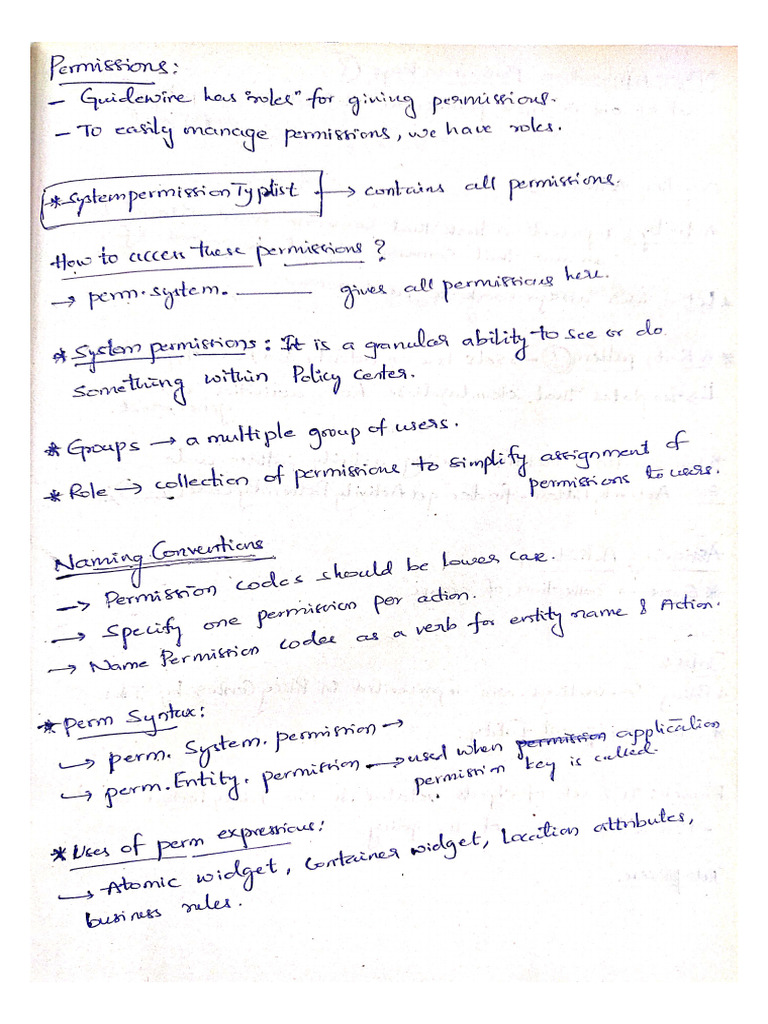 Permissions:
- Guidewire has "roles" for giving permissions.
- To easily manage permissions, we have roles.
* SystempermissionTyplist → contains all permissions.
How to access these permissions?
→ perm.system. ______ gives all permissions here.
* System permissions: It is a granular ability to see or do
something within Policy Center.
* Groups → a multiple group of users.
* Role → collection of permissions to simplify assignment of
permissions to users.
Naming Conventions
→ Permission codes should be lower case.
→ Specify one permission per action.
→ Name Permission codes as a verb for entity name & Action.
* perm Syntax:
→ perm. System. permission →
→ perm. Entity. permission → used when permission application
permission key is called.
* Uses of perm expressions:
→ Atomic widget, Container widget, Location attributes,
business rules.